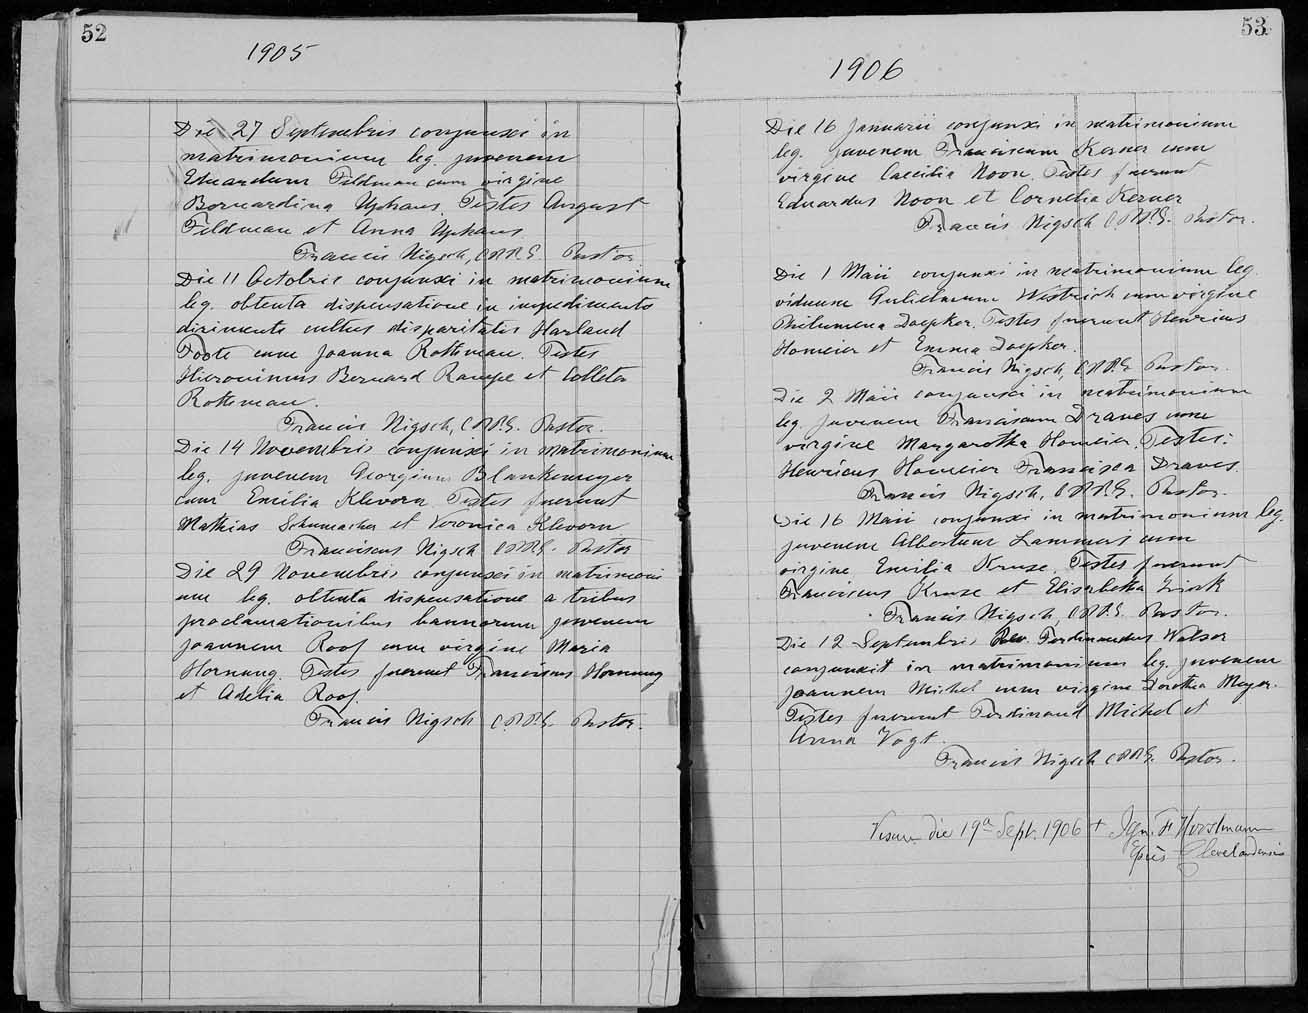 52
1905
Die 27 Septembris conjunxi in
matrimonium leg. juvenem
Eduardum Feldman cum virgine
Bernardina Uphaus. Testes August
Feldman et Anna Uphaus
Francis Nigsch, C.PP.S. Pastor
Die 11 Octobris conjunxi in matrimonium
leg. obtenta dispensatione in impedimento
dirimente cultus disparitatis Harland
Foote cum Joanna Rotteman. Testes
Hieronimus Bernard Rampe et Colleta
Rotteman.
Francis Nigsch, C.PP.S. Pastor.
Die 14 Novembris conjunxi in matrimonium
leg. juvenem Georgium Blankemeyer
cum Emilia Klevorn Testes fuerunt
Mathias Schumacher et Veronica Klevorn
Franciscus Nigsch C.PP.S. Pastor
Die 29 Novembris conjunxi in matrimoni
um leg. obtenta dispensatione a tribus
proclamationibus bannorum juvenem
Joannem Roof cum virgine Maria
Hornung. Testes fuerunt Franciscus Hornung
et Adelia Roof.
Francis Nigsch C.PP.S. Pastor.
53
1906
Die 16 Januarii conjunxi in matrimonium
leg. juvenem Franciscum Kerner cum
virgine Caecilia Noon. Testes fuerunt
Eduardus Noon et Cornelia Kerner
Francis Nigsch C.PP.S. Pastor.
Die 1 Maii conjunxi in matrimonium leg.
viduum Gulielmum Westrich cum virgine
Philumena Doepker. Testes fuerunt Henricus
Homeier et Emma Doepker.
Francis Nigsch, C.PP.S Pastor.
Die 2 Maii conjunxi in matrimonium
leg. juvenem Franciscum Draves cum
virgine Margaretha Homeier. Testes:
Henricus Homeier Francisca Draves.
Francis Nigsch, C.PP.S. Pastor.
Die 16 Maii conjunxi in matrimonium leg.
juvenem Albertum Lammers cum
virgine Emilia Kruse. Testes fuerunt
Franciscus Kruse et Elisabetha Zink
Francis Nigsch, C.PP.S. Pastor.
Die 12 Septembris Rev. Ferdinandus Walser
conjunxit in matrimonium leg. juvenem
Joannem Michel cum virgine Dorothea Meyer.
Testes fuerunt Ferdinand Michel et
Anna Vogt.
Francis Nigsch C.PP.S. Pastor.
Visum die 19a Sept. 1906 + Ign. F. Horstmann
Epūs Clevelandensis